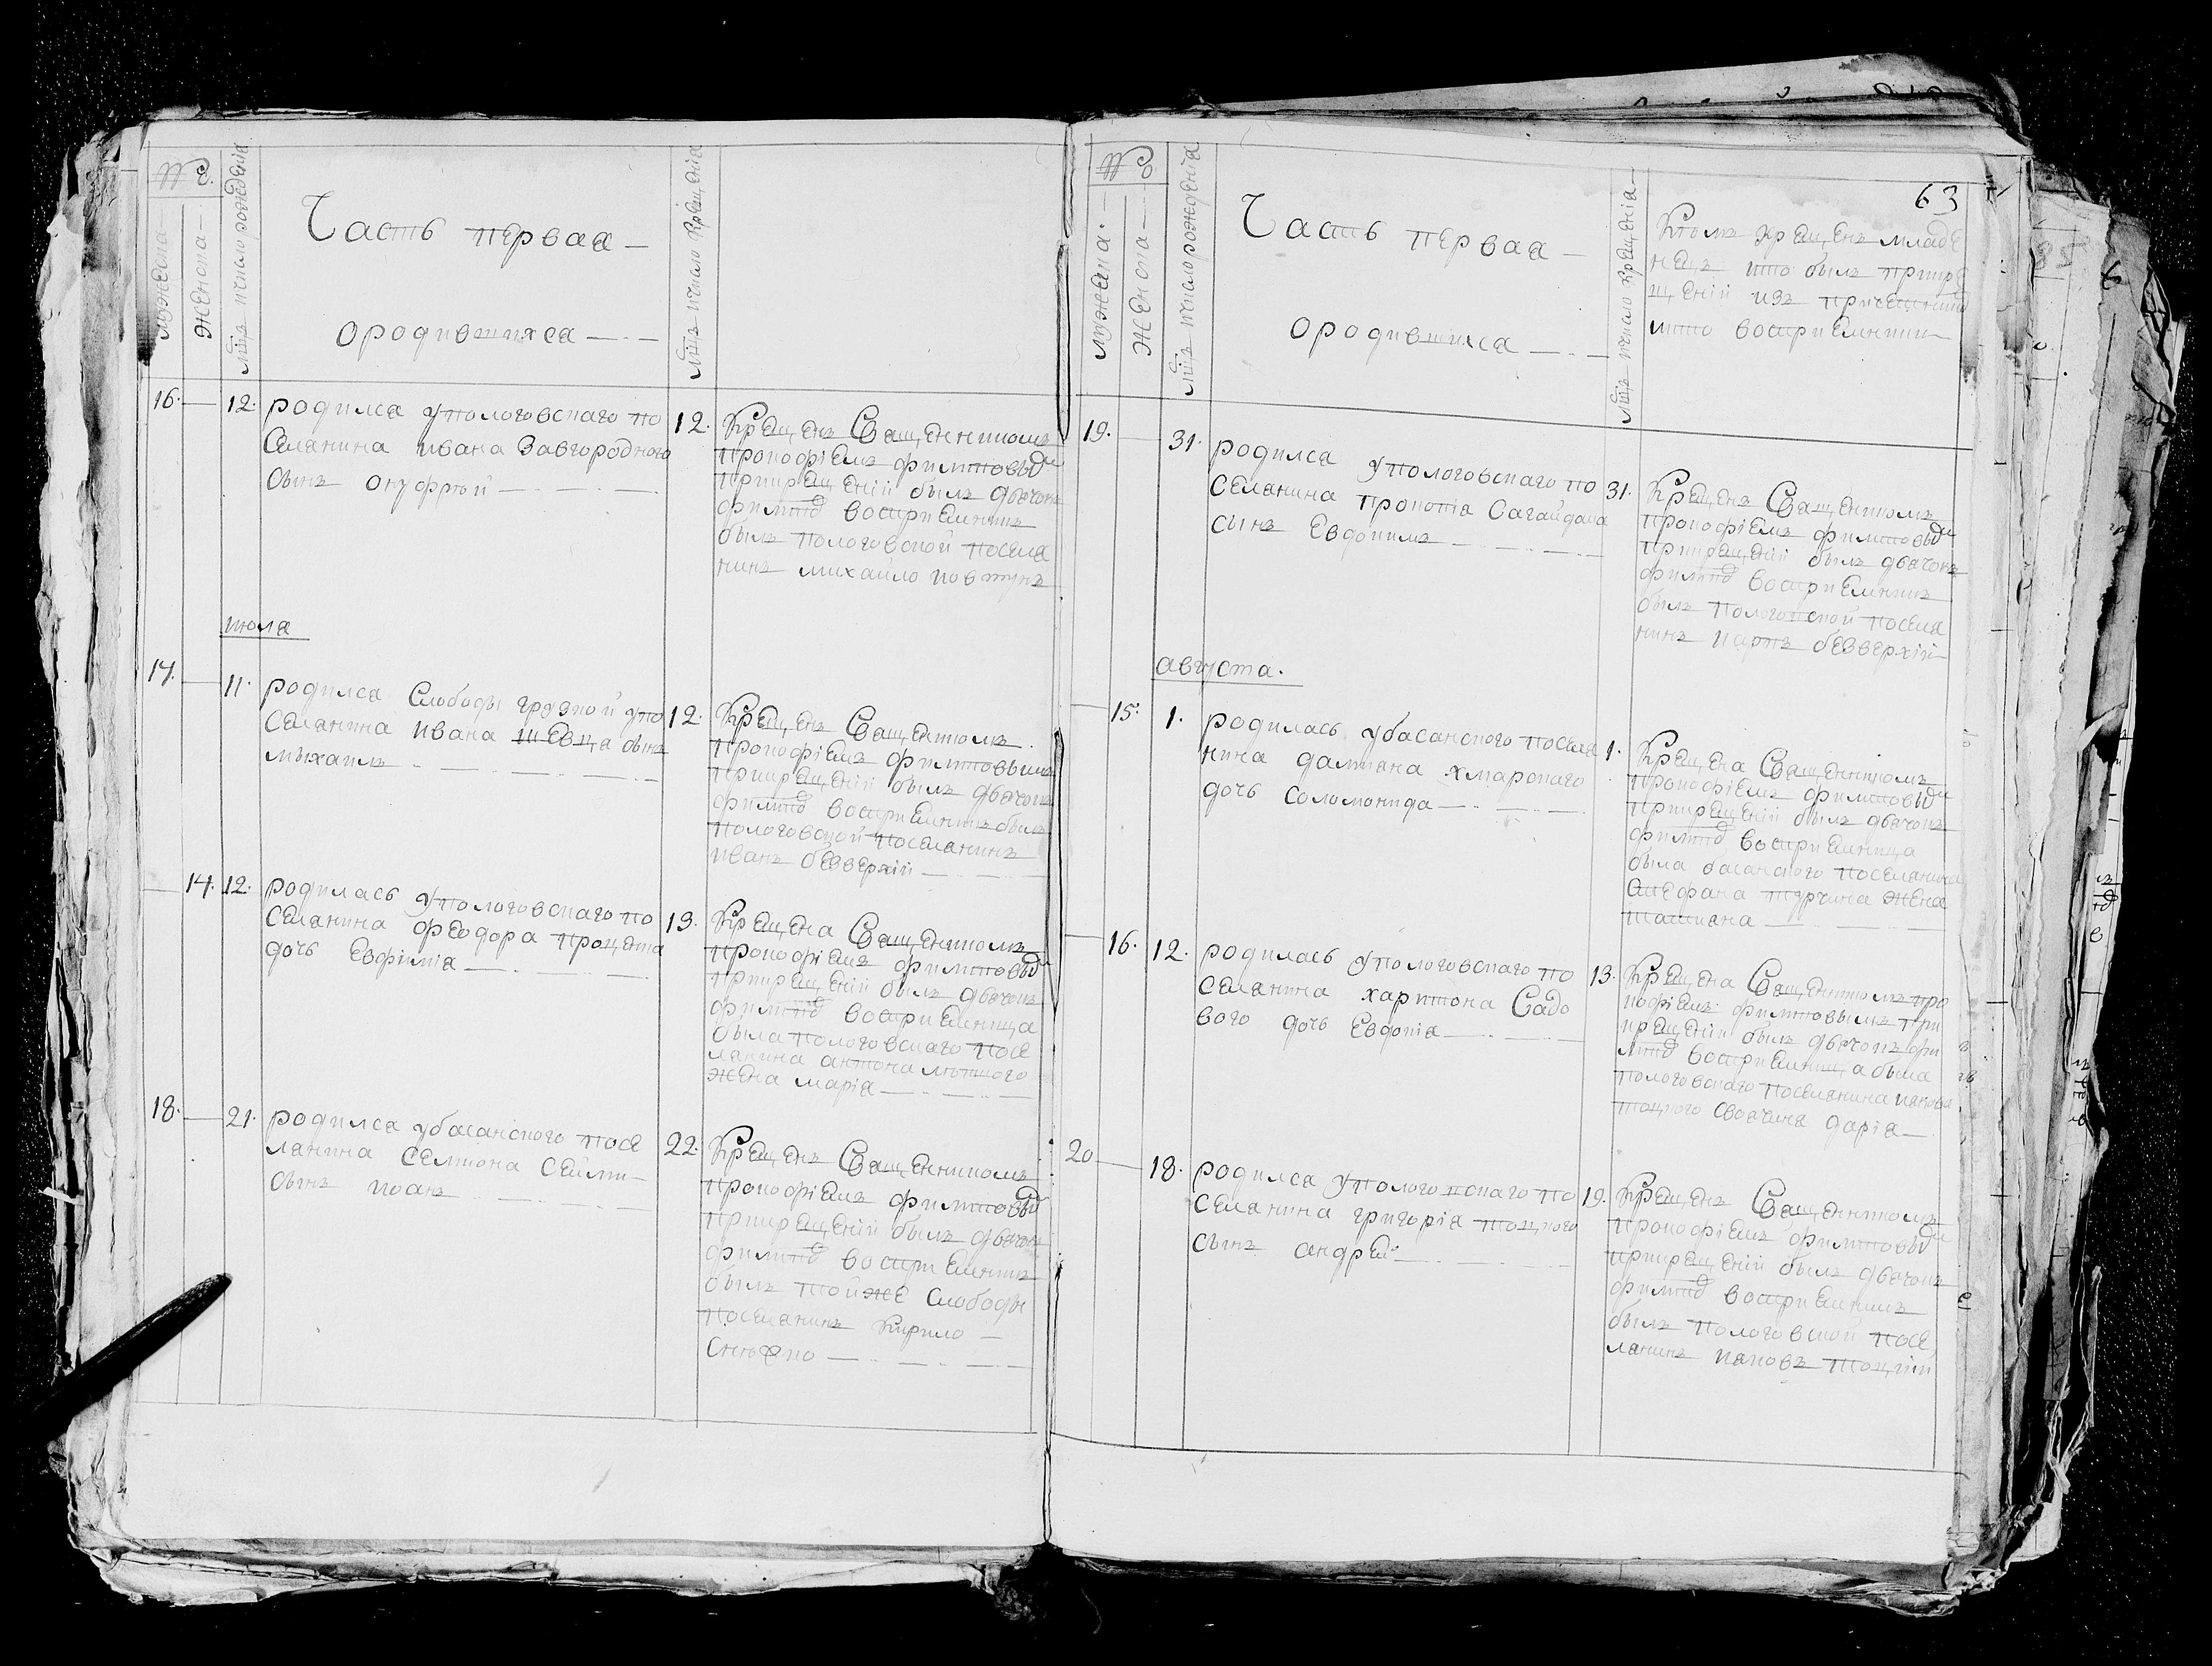 №
мужеска
женска
мѣць и число рожденія
Часть первая
ородившихся
мѣць и число крещенія
16. 12. родился упологовскаго по
селянина ивана Завгородного
сынъ онуфрїй
12. Крещенъ Священникомъ
прокофіемъ филиповымъ
прикрещеніи былъ дьячокъ
восприемникъ
былъ пологовской поселя
нинъ михайло ковтунъ
июля
17. 11. родился Слободы грузкой упо
селянина ивана шевца сынъ
михаилъ
12. Крещенъ Священникомъ
прокофіемъ филиповымъ
прикрещеніи былъ дьячокъ
восприемникъ былъ
пологовской поселянинъ
иванъ безверхій
14. 12. родилась упологовскаго по
селянина феодора проценка
дочь Евфимія
13. Крещена Священникомъ
прокофіемъ филиповымъ
прикрещеніи былъ дьячокъ
восприемница
была пологовскаго посе
лянина антона
жена марія
18. 21. родился убасанского посе
лянина семиона
сынъ иоанъ
22. Крещенъ Священникомъ
прокофіемъ филиповымъ
прикрещеніи былъ дьячокъ
восприемникъ
былъ тойже слободы
поселянинъ кирило

63
№
мужеска
женска
мѣць и число рожденія
Часть первая
ородившихся
мѣць и число крещенія
Кѣмъ крещенъ младе
нецъ кто былъ прикре
щеніи изъ
кто восприемники
19. 31. родился упологовскаго по
селянина прокопія сагайдака
сынъ Евдокимъ
31. Крещенъ Священникомъ
прокофіемъ филиповымъ
прикрещеніи былъ дьячокъ
восприемникъ
былъ пологовской поселя
нинъ карпъ безверхій
августа.
15. 1. родилась убасанского поселя
нина дамиана хмарского
дочь соломонида
1. Крещена Священникомъ
прокофіемъ филиповымъ
прикрещеніи былъ дьячокъ
восприемница
была басанского поселянина
Стефана турчина жена
татиана
16. 12. родилась упологовскаго по
селянина харитона Садо
вого дочь Евдокія
13. Крещена Священникомъ про
кофіемъ филиповымъ при
крещеніи былъ дьячокъ
восприемница была
пологовскаго поселянина якова
тоцкого своячина дарія
20 18. родился упологовскаго по
селянина григорія тоцкого
сынъ андрей
19. Крещенъ Священникомъ
прокофіемъ филиповымъ
прикрещеніи былъ дьячокъ
восприемникъ
былъ пологовской посе
лянинъ яковъ тоцкій